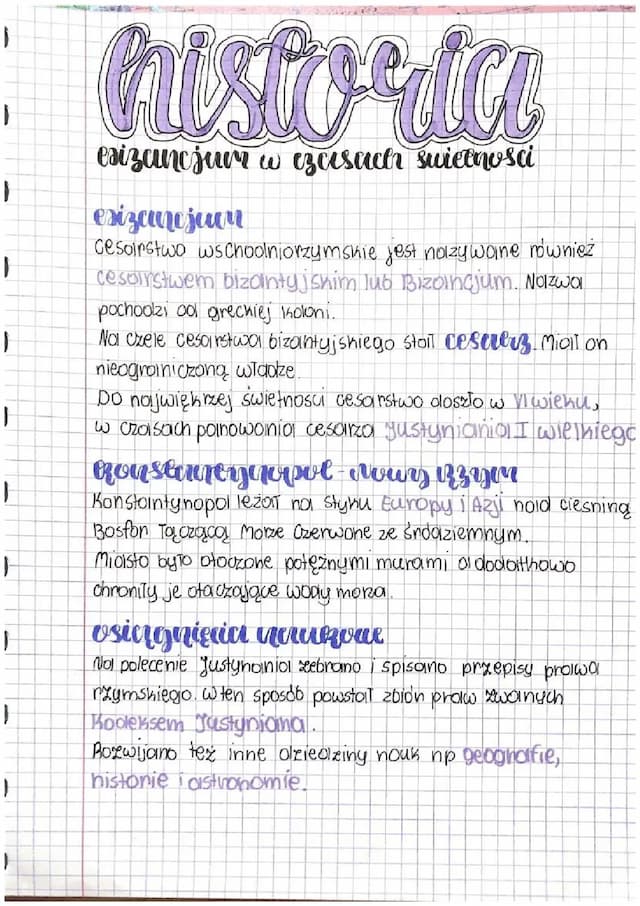 historia
Bizancjum w czasach świetności
Bizancjum
Cesarstwo wschodniorzymskie jest nazywane również
cesarstwem bizantyjskim lub Bizancjum. Nazwa
pochodzi od greckiej koloni.
Na czele cesarstwa bizantyjskiego stał cesarz. Miał on
nieograniczoną władze.
Do największej świetności cesarstwo doszło w VI wieku,
w czasach panowania cesarza Justyniania I wielkiego
Konstantynopol - Nowy Rzym
Konstantynopol leżał na styku Europy i Azji nad cieśniną
Bosfor łączącą Morze Czerwone ze śródziemnym.
Miasto było otoczone potężnymi murami a dodatkowo
chroniły je otaczające wody morza.
osiągnięcia naukowe
Na polecenie Justyniania zebrano i spisano przepisy prawa
rzymskiego. W ten sposób powstał zbiór praw zwanych
Kodeksem Justyniana.
Rozwijano też inne dziedziny nauk np geografie,
historie i astronomie.